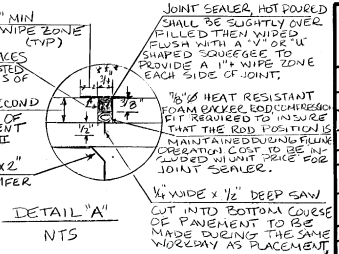 " MIN
WIPE ZONE
(TYP)
ACES
STED
S OF
ECOND
OF
ENT
II
x 2"
FER
3/4"
3/8"
1/2"
DETAIL "A"
NTS
JOINT SEALER, HOT POURED
SHALL BE SLIGHTLY OVER
FILLED THEN WIPED
FLUSH WITH A "V" OR "U"
SHAPED SQUEEGEE TO
PROVIDE A 1"± WIPE ZONE
EACH SIDE OF JOINT.
7/8"Ø HEAT RESISTANT
FOAM BACKER ROD COMPRESSION
FIT REQUIRED TO INSURE
THAT THE ROD POSITION IS
MAINTAINED DURING FILLING
OPERATION COST TO BE IN-
CLUDED W/ UNIT PRICE FOR
JOINT SEALER.
1/4" WIDE x 1/2" DEEP SAW
CUT INTO BOTTOM COURSE
OF PAVEMENT TO BE
MADE DURING THE SAME
WORKDAY AS PLACEMENT,